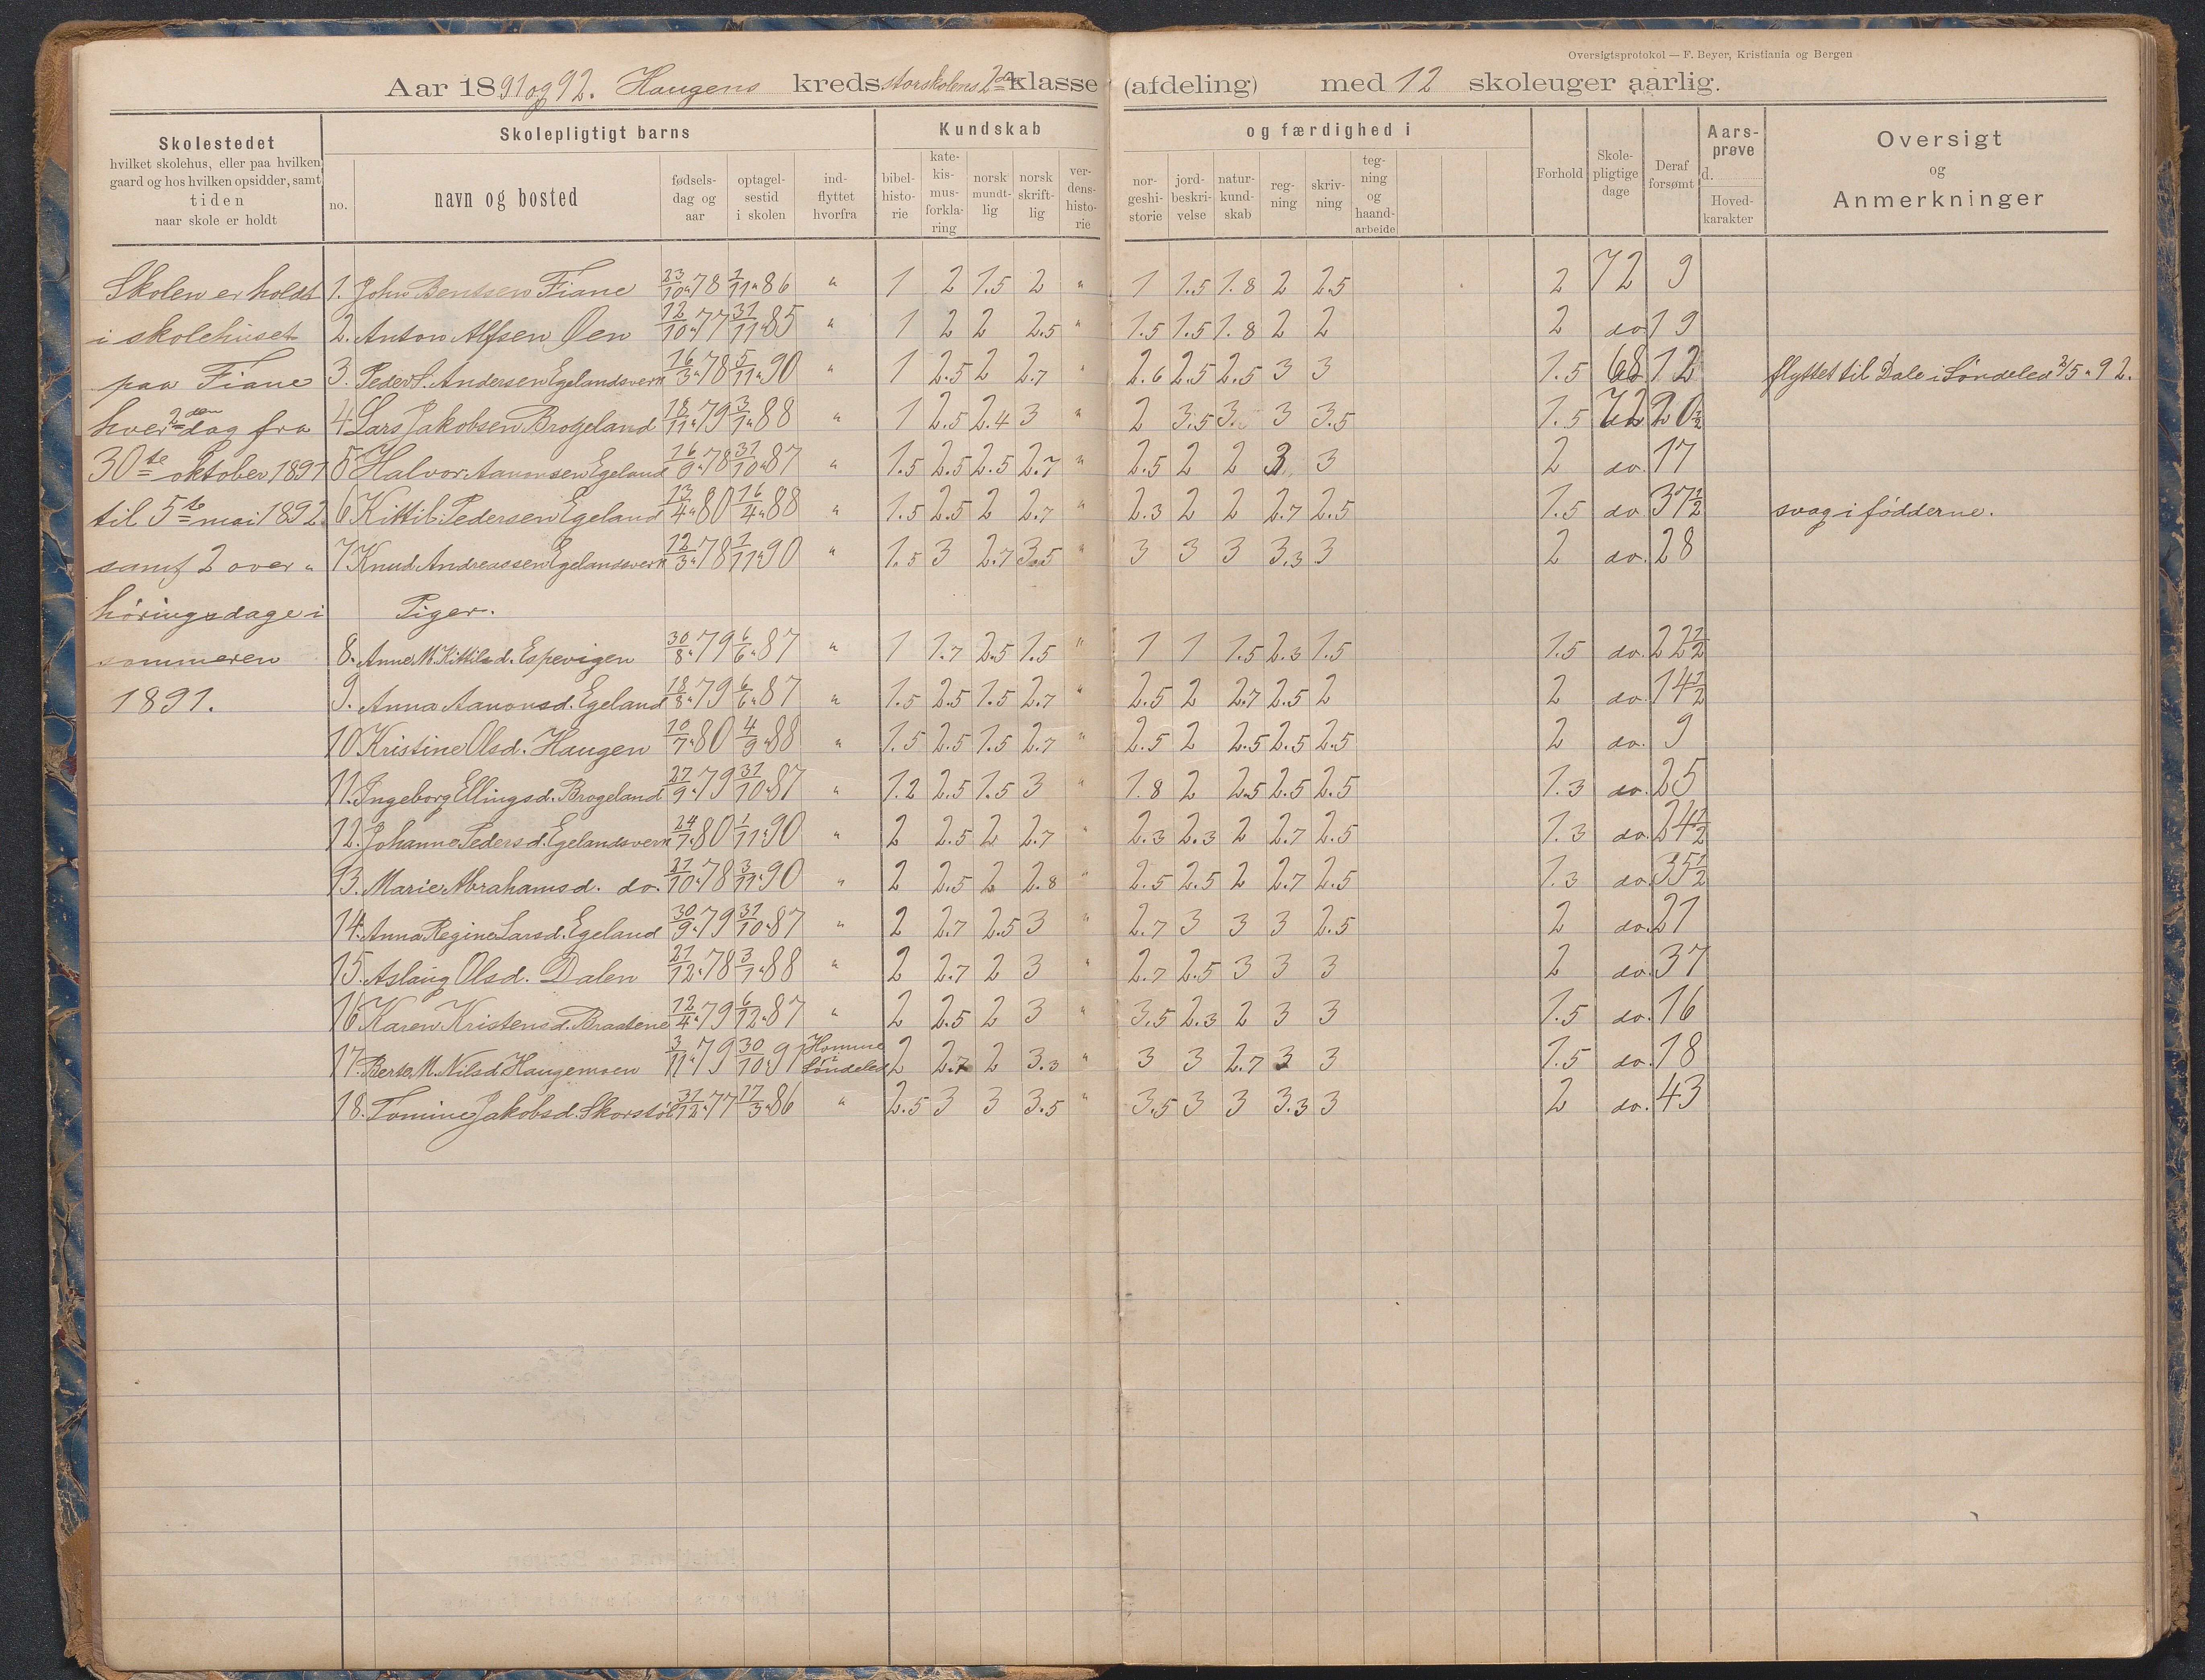 Oversigtsprotokol — F. Beyer, Kristiania og Bergen
Aar 1891 og 92. Haugens kreds storskolens 2den klasse (afdeling) med 12 skoleuger aarlig.
Skolestedet
hvilket skolehus, eller paa hvilken
gaard og hos hvilken opsidder, samt
tiden
naar skole er holdt
Skolepligtigt barns
no. navn og bosted
fødsels-dag og aar
optagel-sestid i skolen
ind-flyttet hvorfra
Kundskab og færdighed i
bibel-histo-rie
kate-kis-mus-forkla-ring
norsk mundt-lig
norsk skrift-lig
ver-dens-histo-rie
nor-geshi-storie
jord-beskri-velse
natur-kund-skab
reg-ning
skriv-ning
teg-ning og haand-arbeide
Forhold
Skole-pligtige dage
Deraf forsømt
Aars-prøve d.
Hoved-karakter
Oversigt og Anmerkninger
Skolen er holdt
i skolehuset
paa Fiane
hver 2den dag fra
30te oktober 1891
til 5te mai 1892
samt 2 over-
høringsdage i
sommeren
1891.
1. John Bentsen Fiane 23/10 78 1/11 86 " 1 2 1.5 2 " 1 1.5 1.8 2 2.5 2 72 9
2. Anton Alfsen Øen 12/10 77 31/11 85 " 1 2 2 2.5 " 1.5 1.5 1.8 2 2 2 do 19
3. Peder S. Andersen Egelandsverk 16/3 78 5/11 90 " 1 2.5 2 2.7 " 2.6 2.5 2.5 3 3 1.5 68 12 flyttet til Dale i Søndeled 3/5 92.
4 Lars Jakobsen Brogeland 18/11 79 3/1 88 " 1 2.5 2.4 3 " 2 3.5 3. 3 3.5 1.5 72 20 1/2
5 Halvor Aanonsen Egeland 16/9 78 31/10 87 " 1.5 2.5 2.5 2.7 " 2.5 2 2 3 3 2 do. 17
6 Kittil Pedersen Egeland 13/4 80 16/4 88 " 1.5 2.5 2 2.7 " 2.3 2 2 2.7 2.5 1.5 do 37 1/2 svag i fødderne.
7 Knud Andreassen Egelandsverk 12/3 78 1/11 90 " 1.5 3 2.7 3.5 " 3 3 3 3.3 3 2 do. 28
Piger.
8. Anne M. Kittilsd. Espevigen 30/8 79 6/6 87 " 1 1.7 2.5 1.5 " 1 1 1.5 2.3 1.5 1.5 do. 22 1/2
9. Anna Aanonsd. Egeland 18/8 79 6/6 87 " 1.5 2.5 1.5 2.7 " 2.5 2 2.7 2.5 2 2 do. 14 1/2
10 Kristine Olsd. Haugen 10/7 80 4/9 88 " 1.5 2.5 1.5 2.7 " 2.5 2 2.5 2.5 2.5 2 do. 9
11. Ingeborg Ellingsd. Brogeland 27/9 79 31/10 87 " 1.2 2.5 1.5 3 " 1.8 2 2.5 2.5 2.5 1.3 do. 25
12. Johanne Pedersd. Egelandsverk 24/7 80 1/11 90 " 2 2.5 2 2.7 " 2.3 2.3 2 2.7 2.5 1.3 do. 24 1/2
13. Marie Abrahamsd. do. 21/10 78 3/11 90 " 2 2.5 2 2.8 " 2.5 2.5 2 2.7 2.5 1.3 do 35 1/2
14. Anna Regine Larsd. Egeland 30/9 79 31/10 87 " 2 2.7 2.5 3 " 2.7 3 3 3 2.5 2 do. 21
15. Aslaug Olsd. Dalen 21/12 78 3/1 88 " 2 2.7 2 3 " 2.7 2.5 3 3 3 2 do. 37
16 Karen Kristensd. Brastene 12/4 79 6/12 87 " 2 2.5 2 3 " 3.5 2.3 2 3 3 1.5 do. 16
17. Berte M. Nilsd. Haugemoen 3/11 79 30/10 91 Homme i Søndeled 2 2.7 2 3.3 " 3 3 2.7 3 3 1.5 do. 18
18. Tomine Jakobsd. Skorstøl 31/12 77 17/3 86 " 2.5 3 3 3.5 " 3.5 3 3 3.3 3 2 do. 43